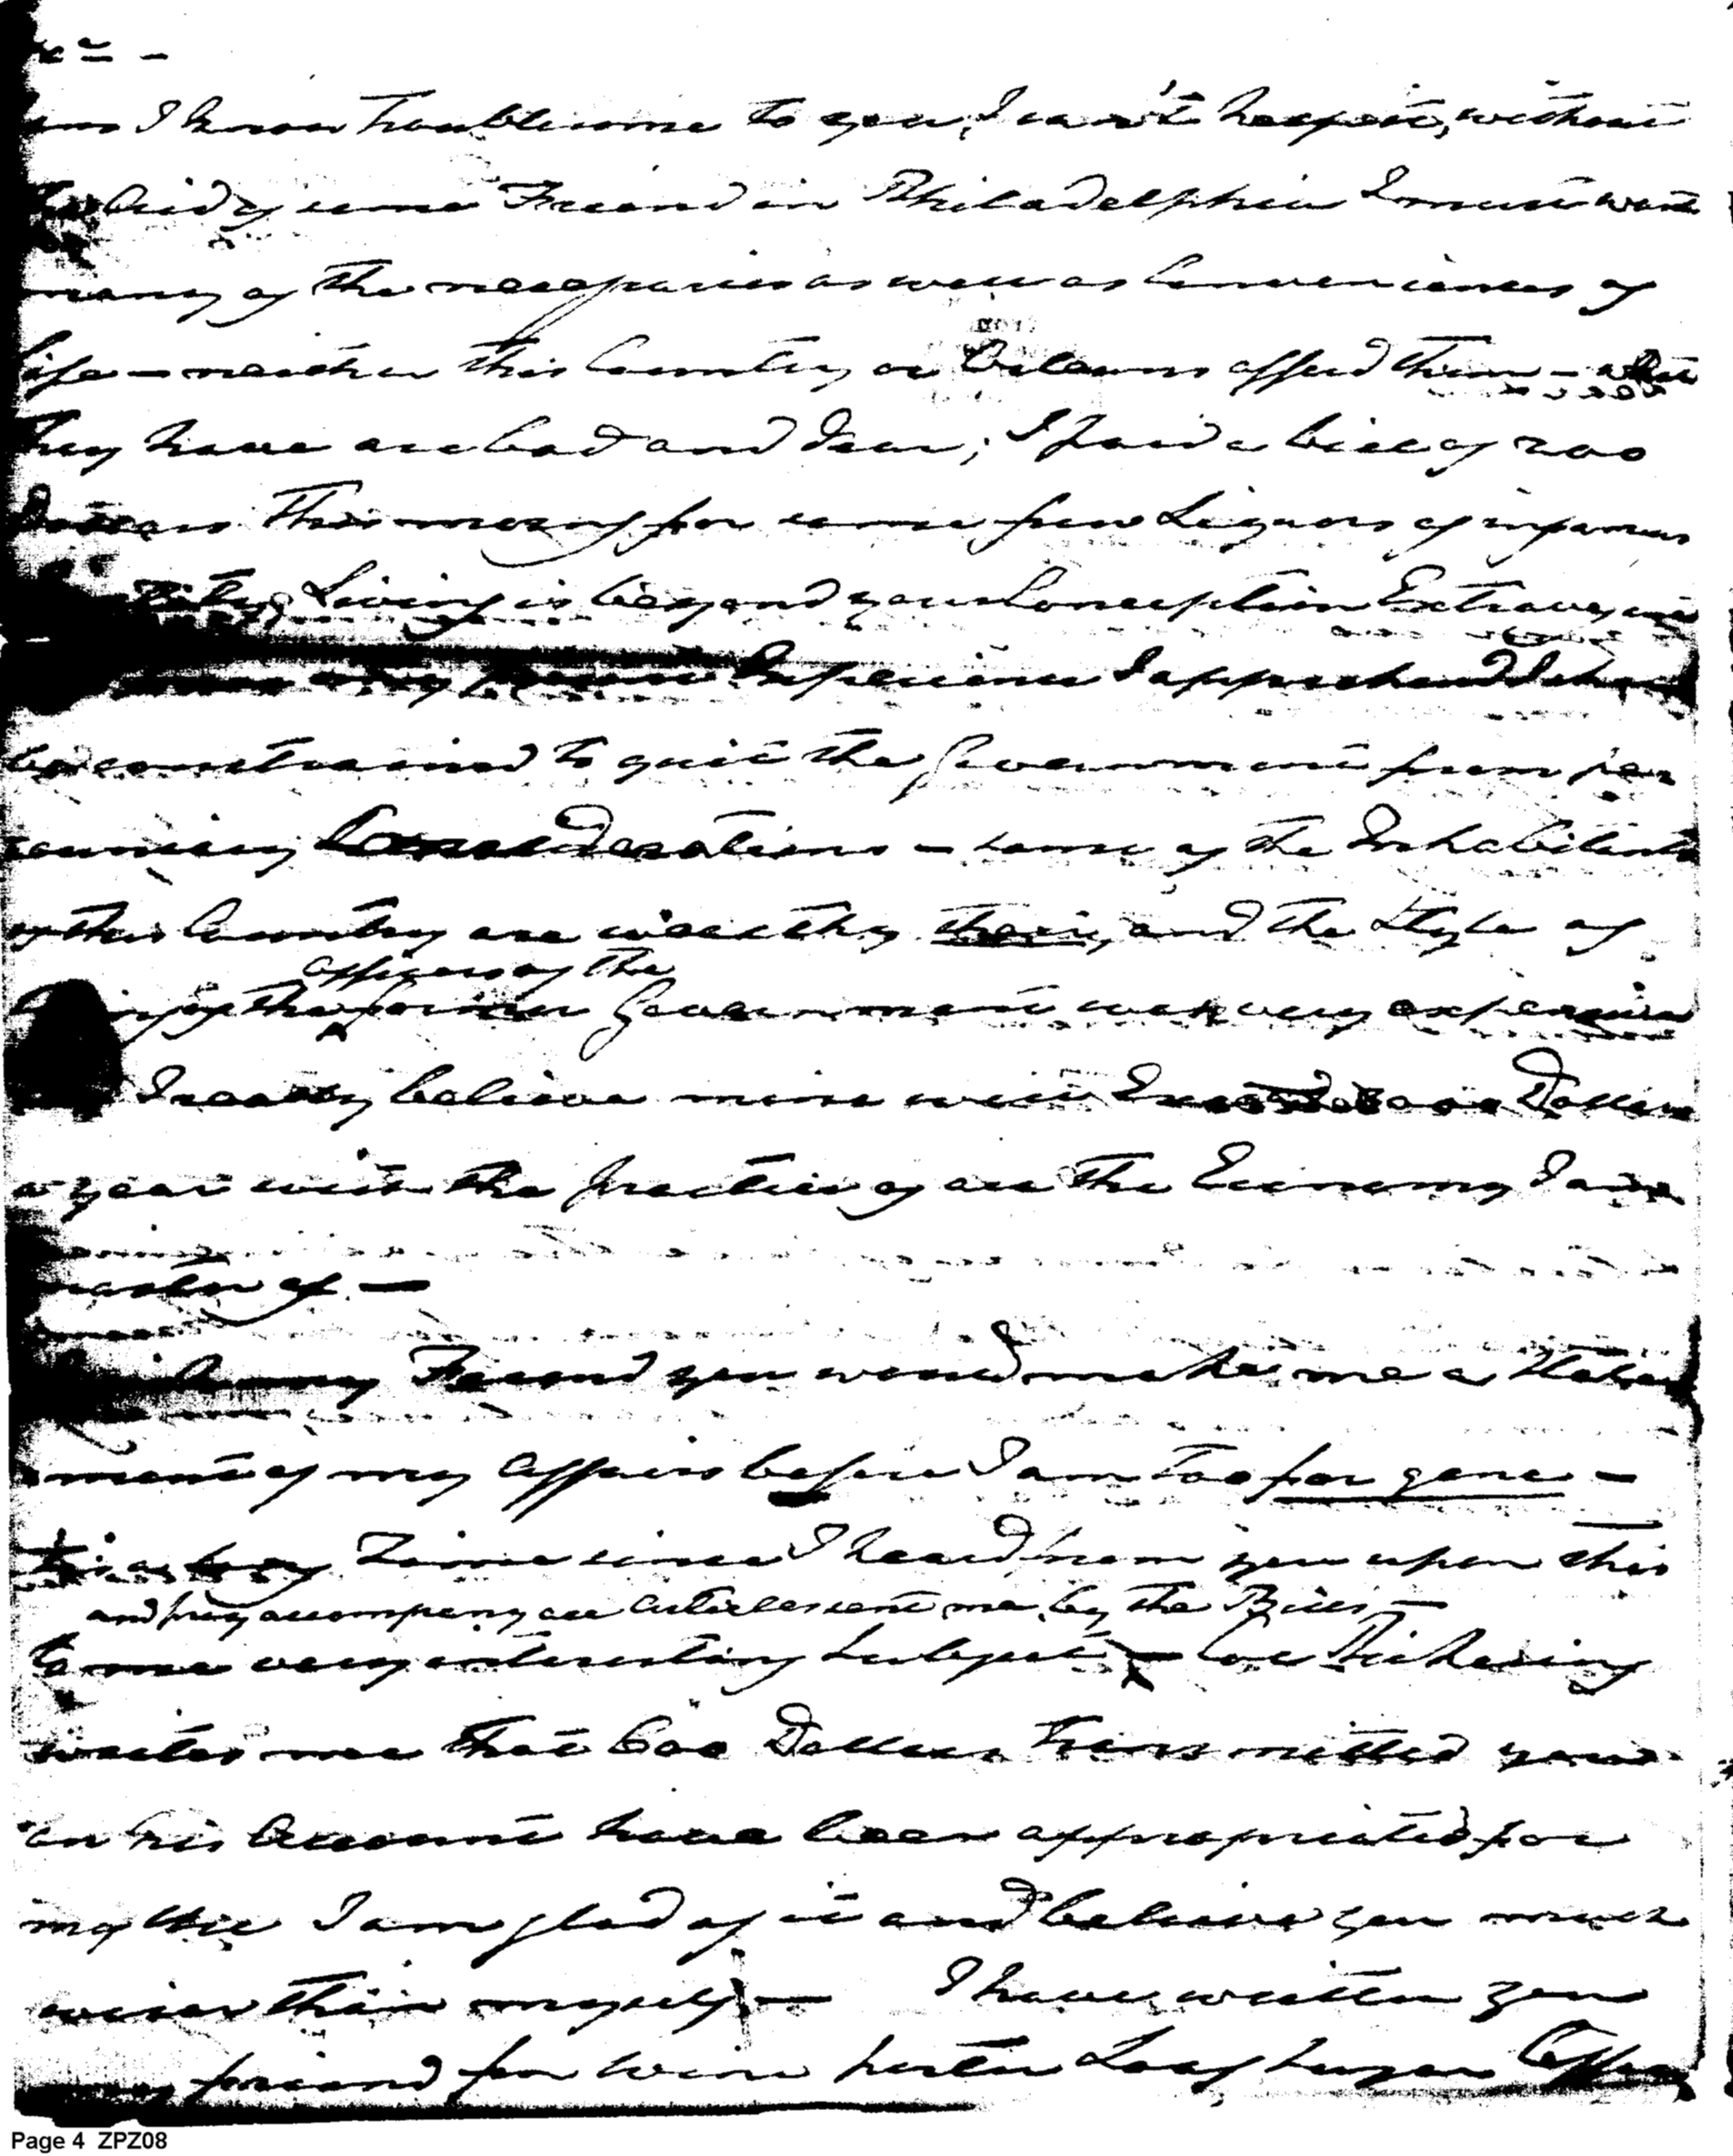 I know troublesome to you, I can't help it, without
Aid of some Friend in Philadelphia I must want
many of the necessaries as well as Conveniences of
life — neither this Country or Orleans afford them — what
they have are bad and dear; I paid a bill of 200
Dollars this morng for some few Liquors of infamous
Living is beyond your Conception Extravagant
Experience I apprehend I shall
be constrained to quit the Government from pec
cuniary Considerations — some of the Inhabitants
of this Country are wealthy their, and the Style of
officers of the
of the former Government was very expensive
I really believe mine will Exceed Dollars
a year with the practice of all the Economy I am
master of —
my Friend you would make me a State
ment of my affairs before I am too far gone —
tis a long Time since I heard from you upon this
and pray accompany all Articles sent me by the Bills —
to me very interesting Subject — Col Pickering
writes me that 600 Dollars transmitted you
on his Account have been appropriated for
my Use I am glad of it and believe you much
wiser than myself — I have written you
my friend for Wine Porter Loaf Sugar Coffee
Page 4 ZPZ08